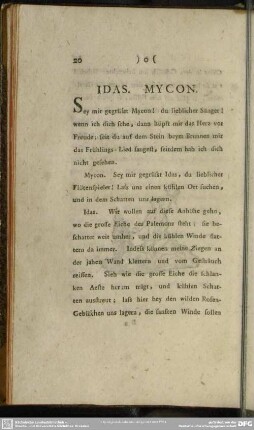 20 ) o (
IDAS. MYCON.
Sey mir gegrüßt Mycon! du lieblicher Sänger!
wenn ich dich sehe, dann hüpft mir das Herz vor
Freude; seit du auf dem Stein beym Brunnen mir
das Frühlings-Lied sangest, seitdem hab ich dich
nicht gesehen.
Mycon. Sey mir gegrüßt Idas, du lieblicher
Flötenspieler! Laß uns einen kühlen Ort suchen,
und in dem Schatten uns lagern.
Idas. Wir wollen auf diese Anhöhe gehn,
wo die große Eiche des Palemons steht; sie be-
schattet weit umher, und die kühlen Winde flat-
tern da immer. Indeß können meine Ziegen an
der jähen Wand klettern und vom Gesträuch
reissen. Sieh wie die große Eiche die schlan-
ken Aeste herum trägt, und kühlen Schat-
ten ausstreut; laß hier bey den wilden Rosen-
Gebüschen uns lagern, die sanften Winde sollen